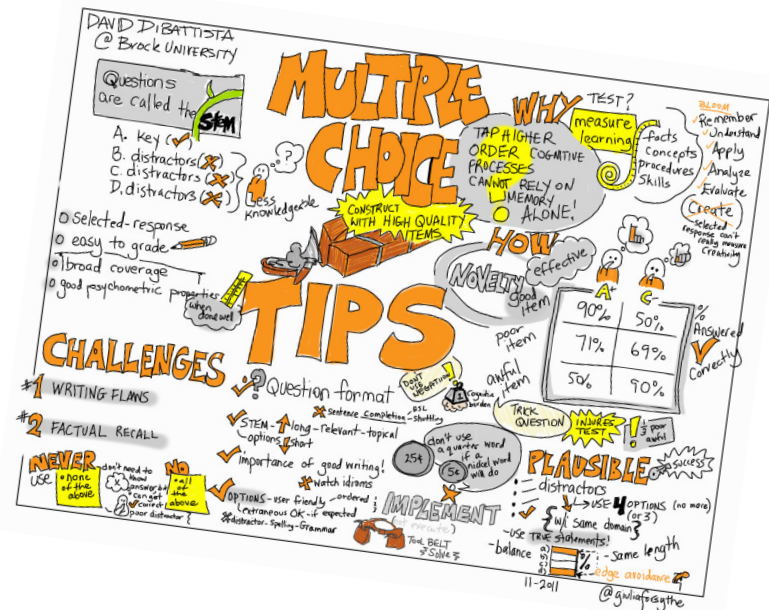 DAVID DiBATTISTA
@ Brock UNIVERSITY
Questions
are called the
STEM
A. key
B. distractors
C. distractors
D. distractors
?
Less
knowledgeable
selected-response
easy to grade
broad coverage
good psychometric properties
when
done well
MULTIPLE
CHOICE
CONSTRUCT
WITH HIGH QUALITY
ITEMS
TIPS
WHY TEST?
measure
learning
facts
Concepts
procedures
Skills
TAP HIGHER
ORDER COGNITIVE
PROCESSES
CANNOT RELY ON
MEMORY
ALONE!
BLOOM
Remember
Understand
Apply
Analyze
Evaluate
Create
selected
response can't
really measure
creativity
HOW
effective
NOVELTY
good
item
poor
item
awful
item
A+ C-
90% 50%
71% 69%
50% 90%
%
Answered
Correctly
TRICK
QUESTION
INJURES
TEST
! 1/3 poor
awful
CHALLENGES
#1 WRITING FLAWS
#2 FACTUAL RECALL
NEVER
use
none
of the
above
don't need to
know
answer but
can get
correct
poor distractor
NO
all
of the
above
? Question format
sentence completion - shuttling
ESL
DON'T
USE
NEGATION!
Cognitive
burden
STEM - long - relevant - topical
options short
importance of good writing!
watch idioms
OPTIONS - user friendly - ordered
extraneous OK - if expected
distractor - Spelling - Grammar
25¢
5¢
don't use
a quarter word
if a
nickel word
will do
IMPLEMENT
(not execute)
Tool BELT
Solve
PLAUSIBLE
SUCCESS
distractors
USE 4 OPTIONS (no more)
(or 3)
{w/ same domain}
- use TRUE statements!
- balance
a)
b)
c)
d)
%
- same length
edge avoidance
11-2011
@giuliaforsythe